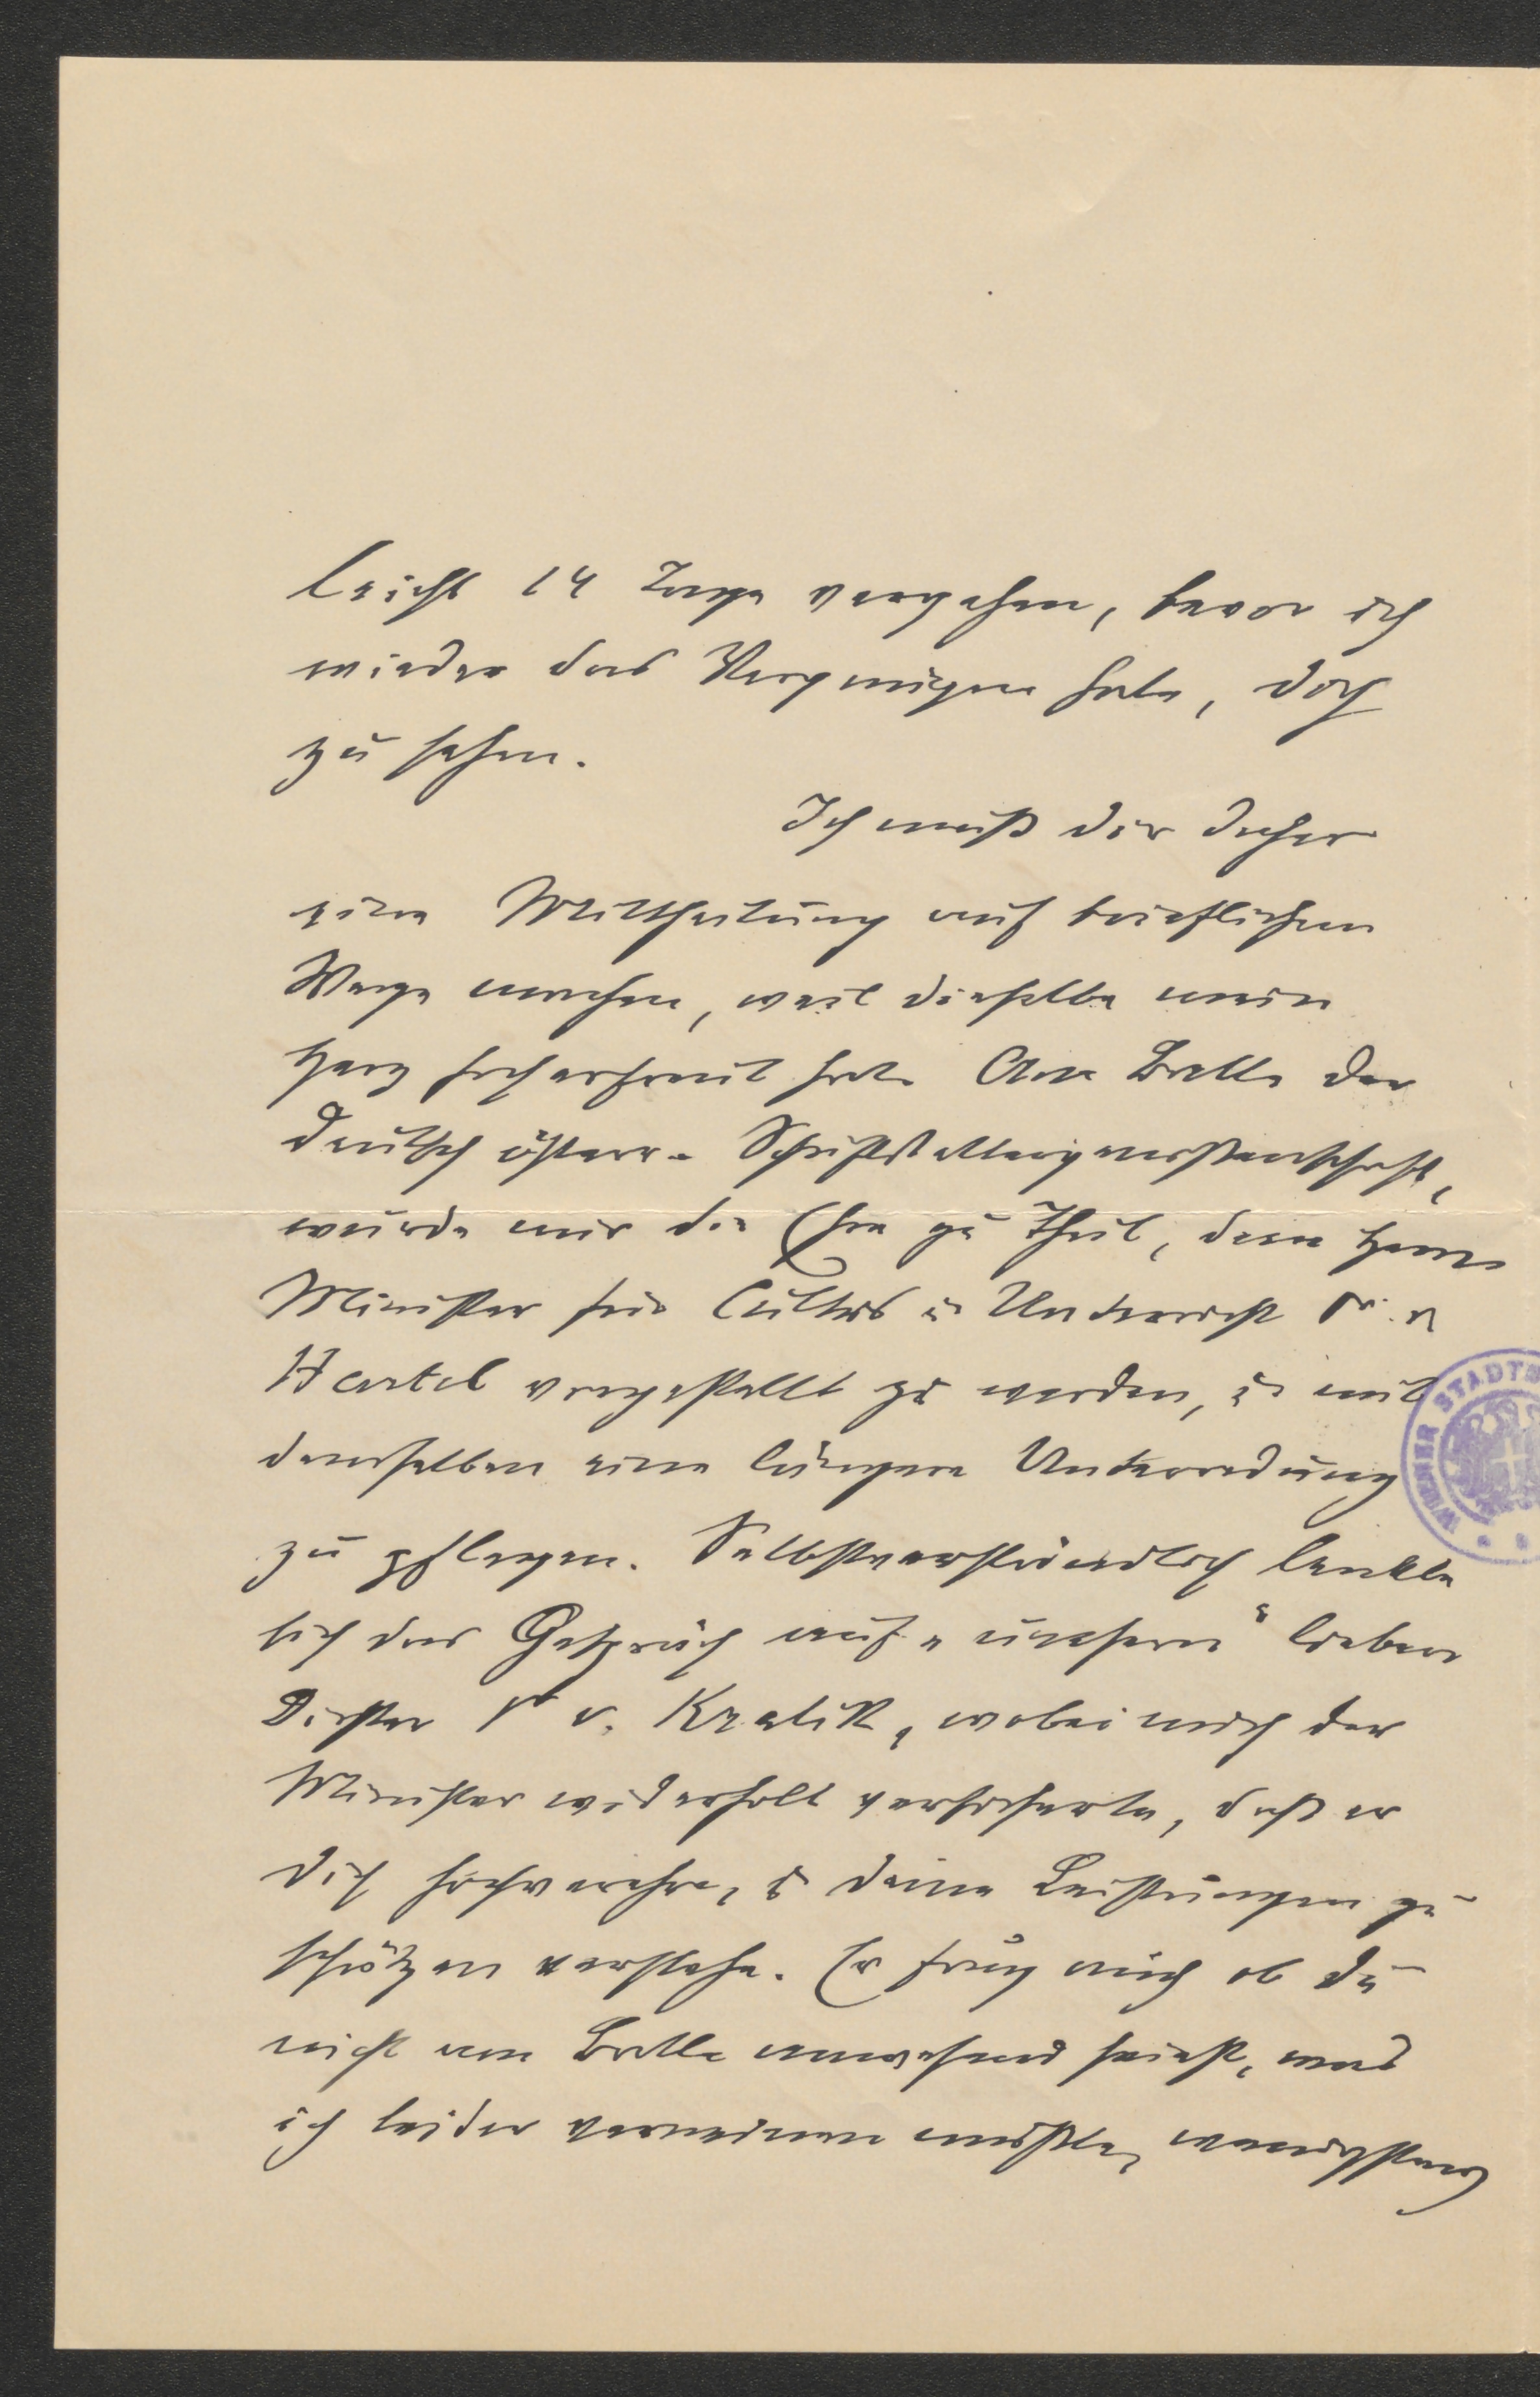 leicht 14 Tage vergehen, bevor ich
wieder das Vergnügen habe, dich
zu sehen.
Ich muß dir daher
eine Mittheilung auf brieflichem
Wege machen, weil dieselbe mein
Herz hocherfreut hat. Am Balle der
deutsch österr. Schriftstellergenossenschaft,
wurde mir die Ehre zu Theil, dem Herrn
Minister für Cultus u Unterricht Dr. v
Hartel vorgestellt zu werden, u mit
demselben eine längere Unterredung
zu pflegen. Selbstverständlich lenkte
sich das Gespräch auf „unseren“ lieben
Dichter Dr v. Kralik, wobei mich der
Minister widerholt versicherte, daß er
dich hochverehre, u deine Leistungen zu
schätzen verstehe. Er frug mich ob du
nicht am Balle anwesend seiest, was
ich leider verneinen mußte, wenigstens
WIENER STADT